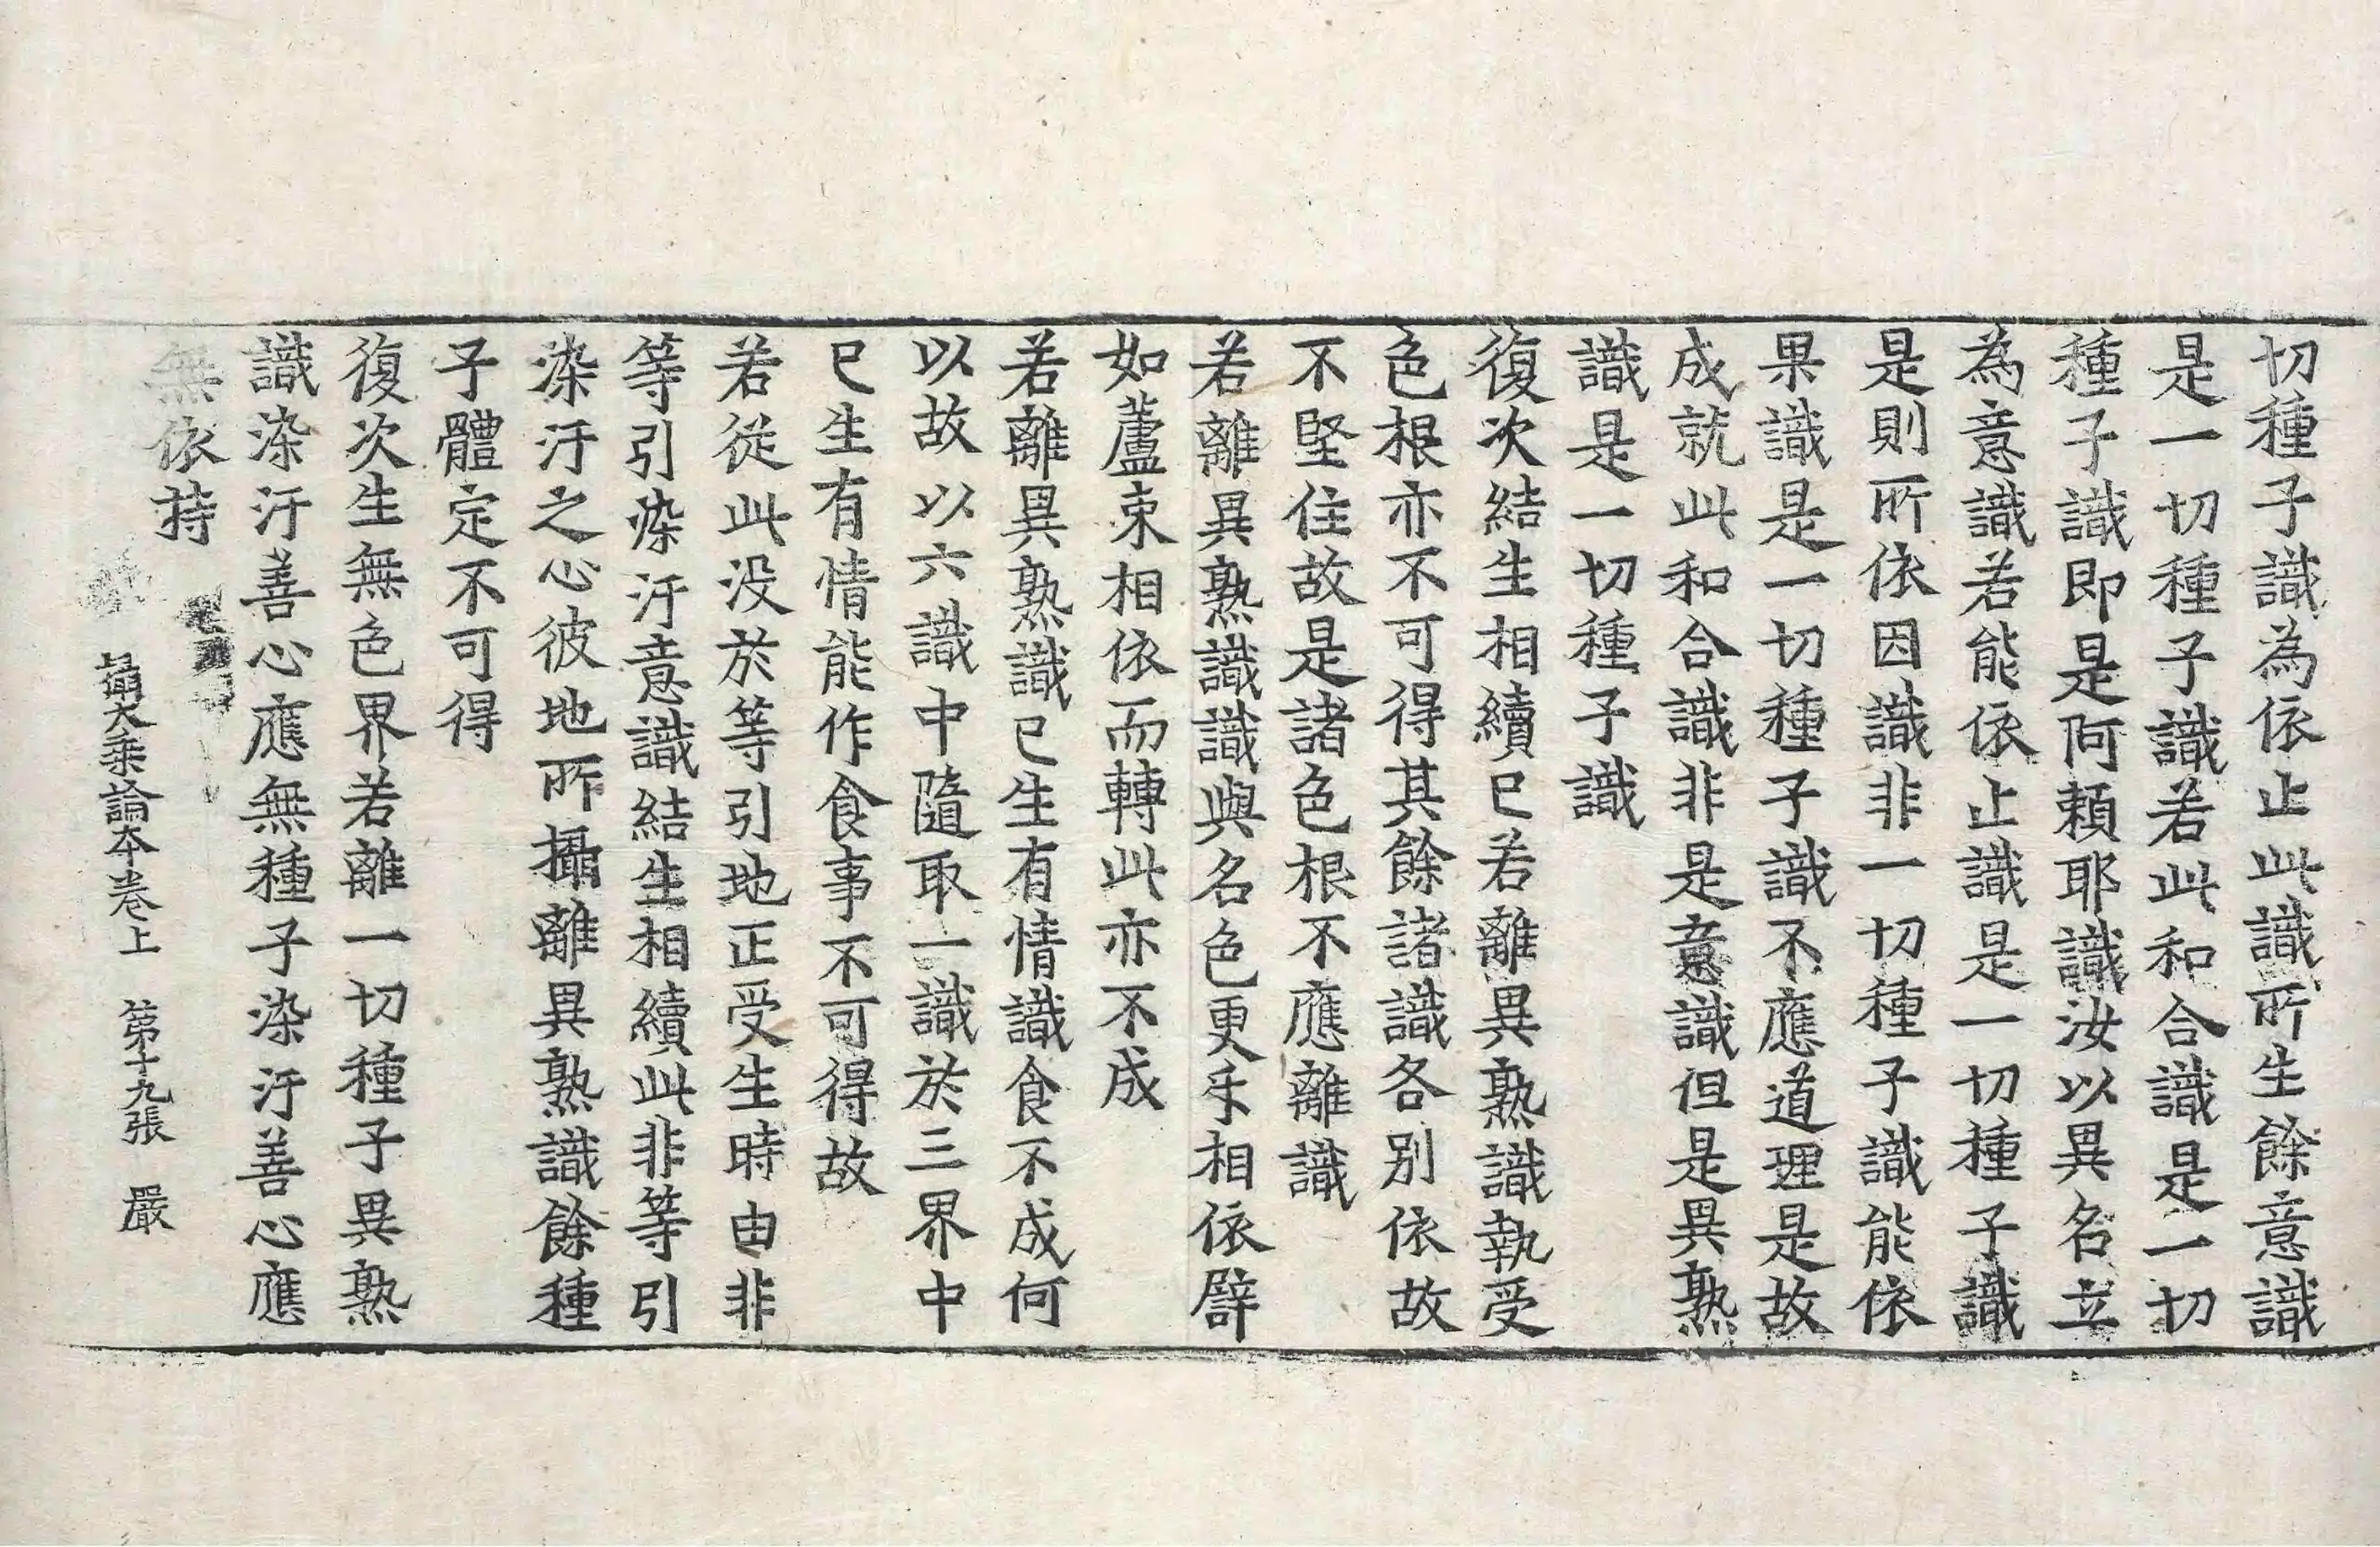 切種子識為依止此識所生餘意識
是一切種子識若此和合識是一切
種子識即是阿頼耶識汝以異名立
為意識若能依止識是一切種子識
是則所依因識非一切種子識能依
果識是一切種子識不應道理是故
成就此和合識非是意識但是異熟
識是一切種子識
復次結生相續已若離異熟識執受
色根亦不可得其餘諸識各別依故
不堅住故是諸色根不應離識
若離異熟識識與名色更互相依譬
如蘆束相依而轉此亦不成
若離異熟識已生有情識食不成何
以故以六識中隨取一識於三界中
已生有情能作食事不可得故
若從此没於等引地正受生時由非
等引染汙意識結生相續此非等引
染汙之心彼地所攝離異熟識餘種
子體定不可得
復次生無色界若離一切種子異熟
識染汙善心應無種子染汙善心應
無依持
攝大乘論本卷上 第十九張 嚴